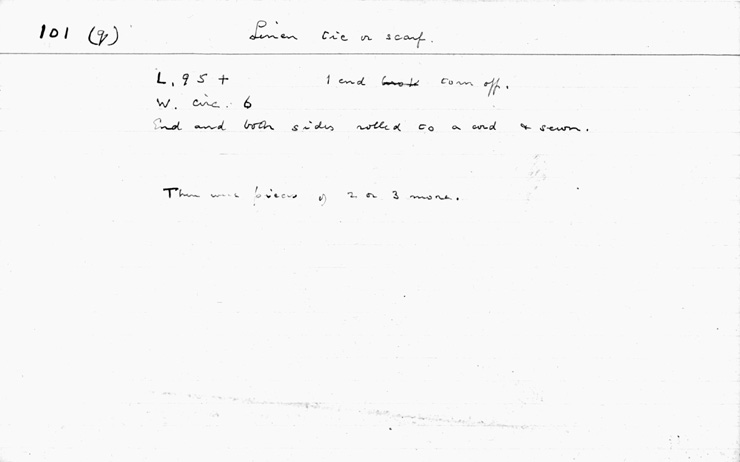 101 (q) Linen tie or scarf.
L. 95 + 1 end torn off.
W. circ. 6
End and both sides rolled to a cord & sewn.
There were pieces of 2 or 3 more.